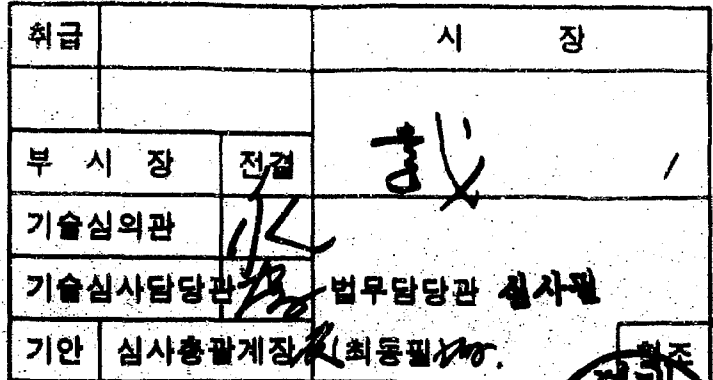 취급 시 장
부 시 장 전결
기술심의관
기술심사담당관 법무담당관 심사필
기안 심사총괄계장 (최동필) 협조